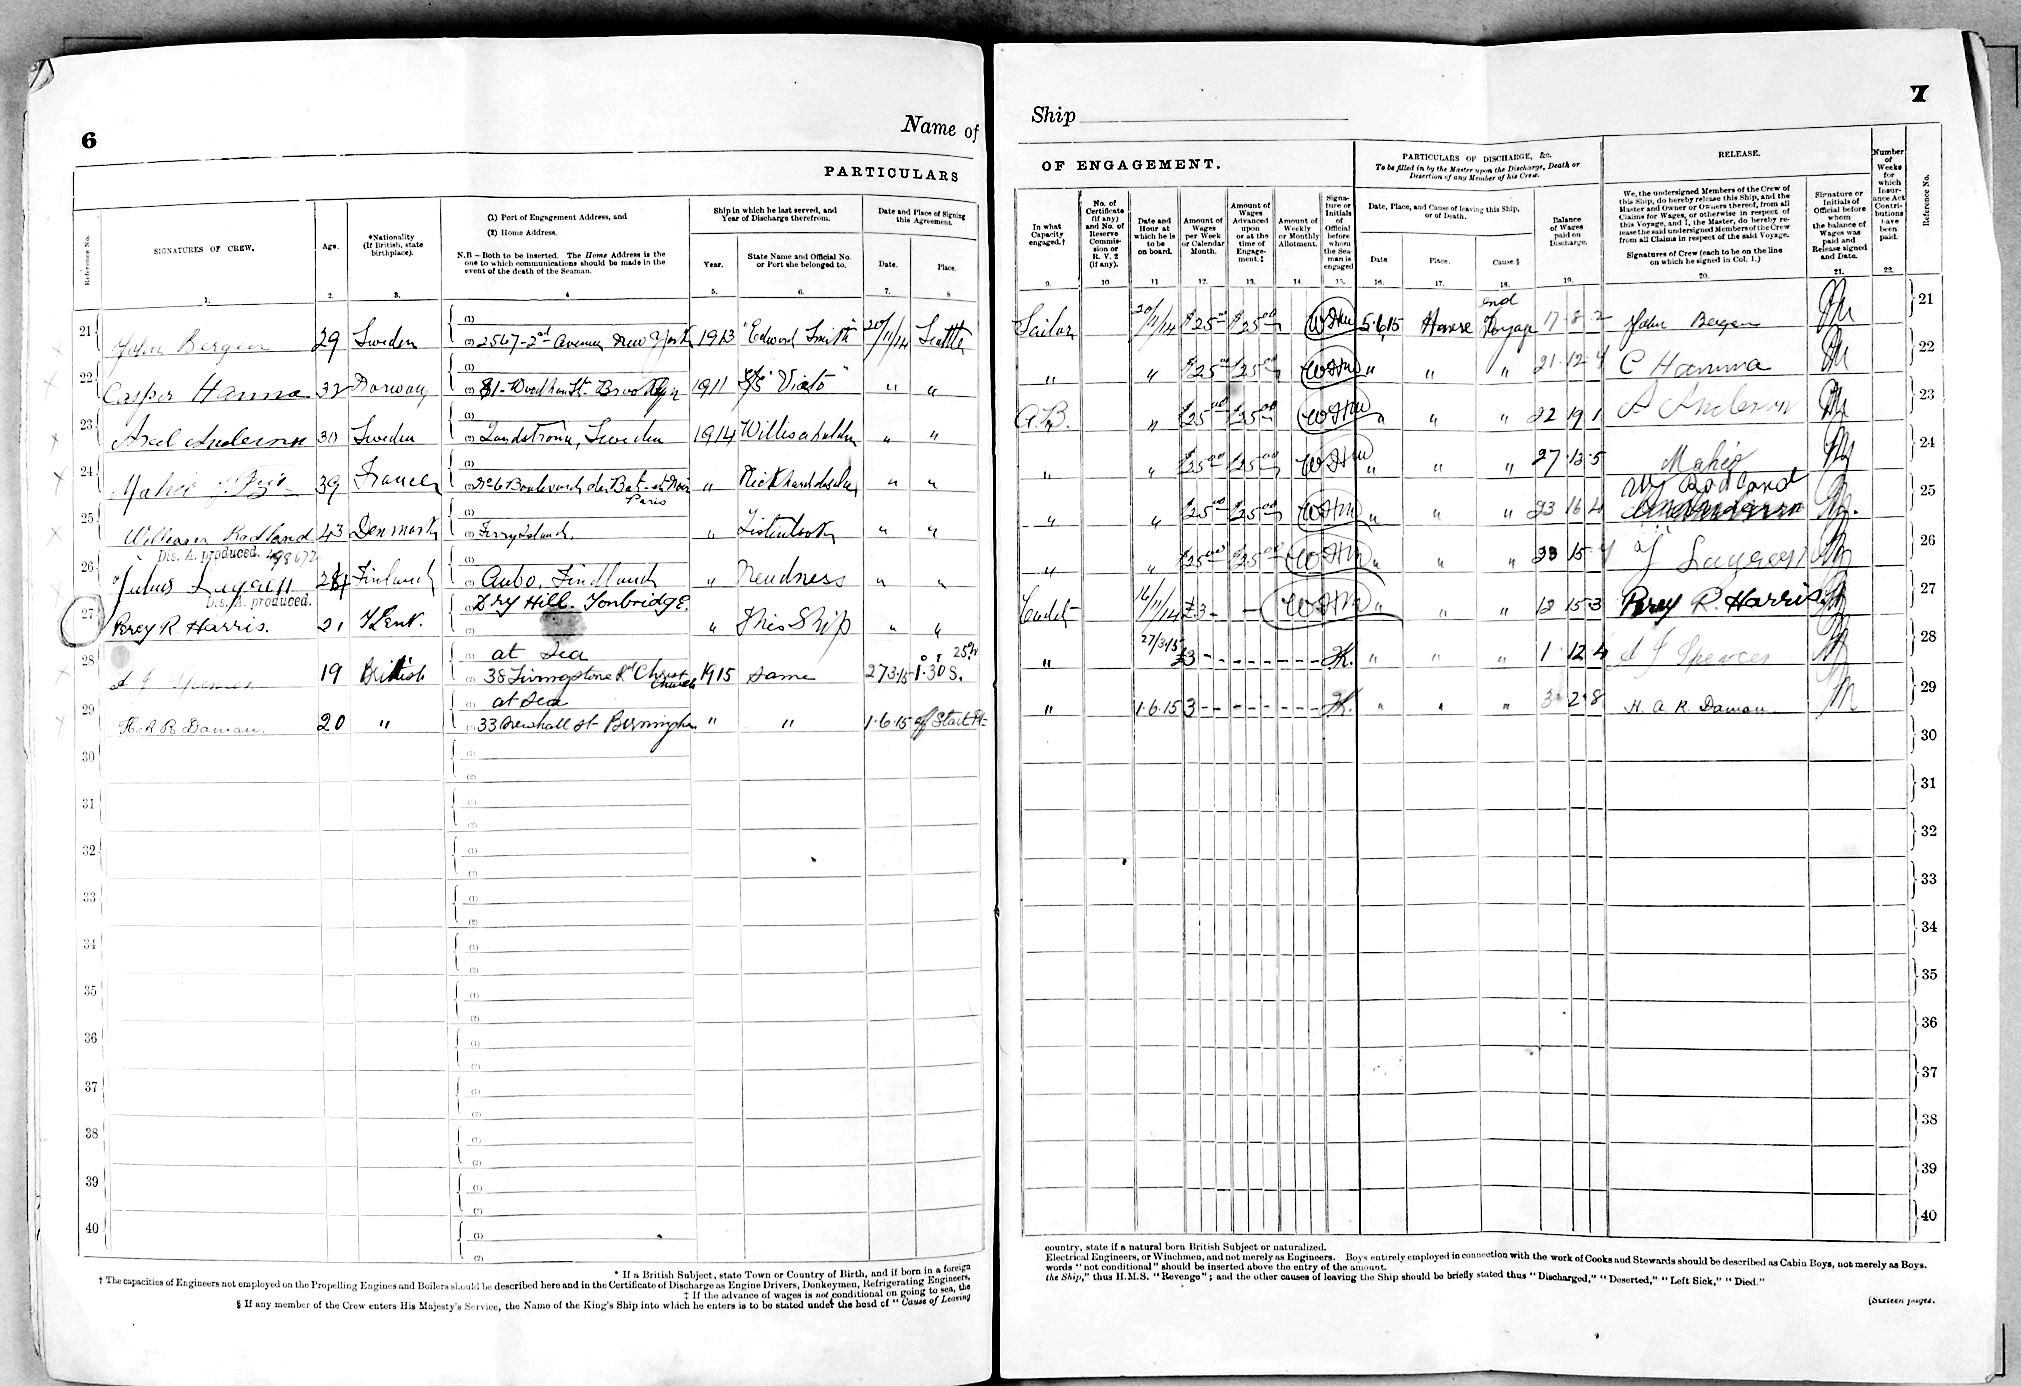 6
Name of
PARTICULARS
Reference No.
SIGNATURES OF CREW.
Age.
*Nationality
(If British, state
birthplace).
(1) Port of Engagement Address, and
(2) Home Address.
N.B – Both to be inserted. The Home Address is the
one to which communications should be made in the
event of the death of the Seaman.
Ship in which he last served, and
Year of Discharge therefrom.
Year.
State Name and Official No.
or Port she belonged to.
Date and Place of Signing
this Agreement.
Date.
Place.
1. 2. 3. 4 5. 6. 7. 8
21 John Bergen 29 Sweden (1) (2) 2567-2nd Avenue New York 1913 "Edward Smith" 20/11/14 Seattle
22 Casper Hanna 32 Norway (1) (2) 81- St. Brooklyn 1911 S/S " " " "
23 Axel Anderson 30 Sweden (1) (2) Landskrona, Sweden 1914 " "
24 Mahéo 39 France (1) (2) No 6 Boulevard des Paris " " "
25 William Rodland 43 Denmark (1) (2) " " "
Dis. A. produced. 498672
26 Julius 24 Finland (1) (2) Aubo, Findland " " "
Dis. A. produced.
27 Percy R. Harris. 21 Kent. Dry Hill. Tonbridge. (2) " This Ship " "
28 19 British (1) at Sea (2) 38 Livingstone Rd Christ Church 1915 same 27 3.15 1.30 S.
29 H. A. R. Daman. 20 " (1) at Sea (2) 33 St Birmingham " " 1.6.15 off Start Pt-
30 (1) (2)
31 (1) (2)
32 (1) (2)
33 (1) (2)
34 (1) (2)
35 (1) (2)
36 (1) (2)
37 (1) (2)
38 (1) (2)
39 (1) (2)
40 (1) (2)
* If a British Subject, state Town or Country of Birth, and if born in a foreign
† The capacities of Engineers not employed on the Propelling Engines and Boilers should be described here and in the Certificate of Discharge as Engine Drivers, Donkeymen, Refrigerating Engineers,
‡ If the advance of wages is not conditional on going to sea, the
§ If any member of the Crew enters His Majesty's Service, the Name of the King's Ship into which he enters is to be stated under the head of "Cause of Leaving
7
Ship
OF ENGAGEMENT.
PARTICULARS OF DISCHARGE, &c.
To be filled in by the Master upon the Discharge, Death or
Desertion of any Member of his Crew.
RELEASE.
Number
of
Weeks
for
which
Insur-
ance Act
Contri-
butions
have
been
paid.
Reference No.
In what
Capacity
engaged.†
No. of
Certificate
(if any)
and No. of
Reserve
Commis-
sion or
R. V. 2
(if any).
Date and
Hour at
which he is
to be
on board.
Amount of
Wages
per Week
or Calendar
Month.
Amount of
Wages
Advanced
upon
or at the
time of
Engage-
ment.‡
Amount of
Weekly
or Monthly
Allotment.
Signa-
ture or
Initials
of
Official
before
whom
the Sea-
man is
engaged
Date, Place, and Cause of leaving this Ship,
or of Death.
Date
Place.
Cause.§
Balance
of Wages
paid on
Discharge.
We, the undersigned Members of the Crew of
this Ship, do hereby release this Ship, and the
Master and Owner or Owners thereof, from all
Claims for Wages, or otherwise in respect of
this Voyage, and I, the Master, do hereby re-
lease the said undersigned Members of the Crew
from all Claims in respect of the said Voyage.
Signatures of Crew (each to be on the line
on which he signed in Col. 1.)
Signature or
Initials of
Official before
whom
the balance of
Wages was
paid and
Release signed
and Date.
9. 10 11 12. 13. 14. 15. 16. 17. 18. 19. 20. 21. 22.
Sailor 20/11/14 $25 00 $25 00 5.6.15 Havre end Voyage 17 8 2 John Bergen 21
" " $25 00 $25 00 " " " 21 12 4 C Hamma 22
A.B. " $25 00 $25 00 " " " 22 19 1 A Anderson 23
" " $25 00 $25 00 " " " 27 13 5 Mahéo 24
" " $25 00 $25 00 " " " 23 16 4 Wm Rodland 25
" " $25 00 $25 00 " " " 23 15 4 26
Cadet 16/11/14 £3 - - " " " 12 15 3 Percy R. Harris 27
" 27/3/15 £3 - - - - - - - " " " 1 12 4 Spencer 28
" 1.6.15 3 - - - - - - - " " " 3 2 8 H. A. R. Daman 29
30
31
32
33
34
35
36
37
38
39
40
country, state if a natural born British Subject or naturalized.
Electrical Engineers, or Winchmen, and not merely as Engineers. Boys entirely employed in connection with the work of Cooks and Stewards should be described as Cabin Boys, not merely as Boys.
words "not conditional" should be inserted above the entry of the amount.
the Ship," thus H.M.S. "Revenge"; and the other causes of leaving the Ship should be briefly stated thus "Discharged," "Deserted," "Left Sick," "Died."
(Sixteen pages.